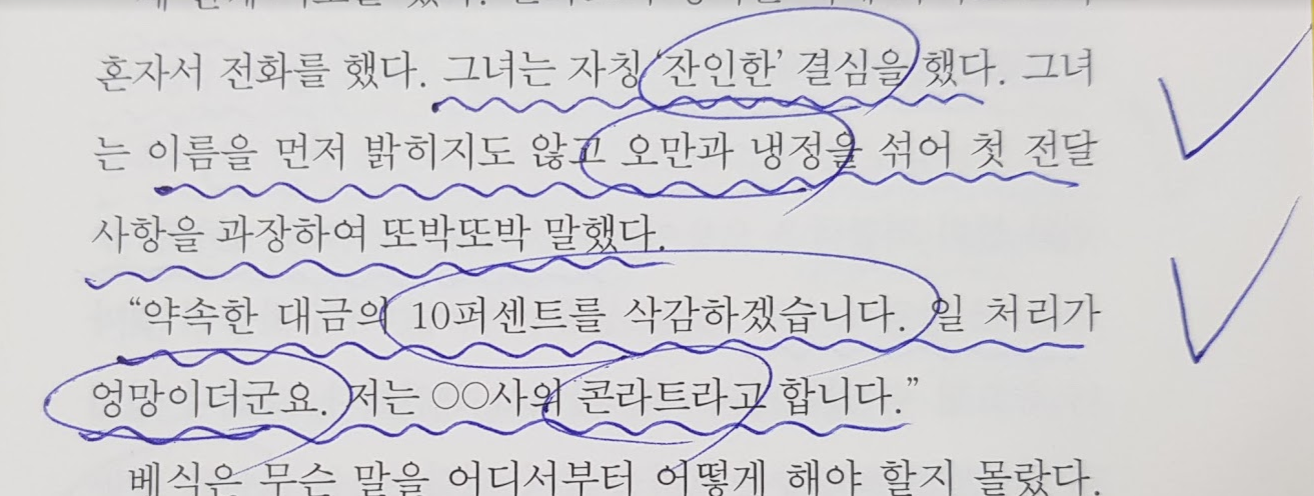 혼자서 전화를 했다. 그녀는 자칭 ‘잔인한’ 결심을 했다. 그녀
는 이름을 먼저 밝히지도 않고 오만과 냉정을 섞어 첫 전달
사항을 과장하여 또박또박 말했다.
“약속한 대금의 10퍼센트를 삭감하겠습니다. 일 처리가
엉망이더군요. 저는 ○○사의 콘라트라고 합니다.”
베식은 무슨 말을 어디서부터 어떻게 해야 할지 몰랐다.